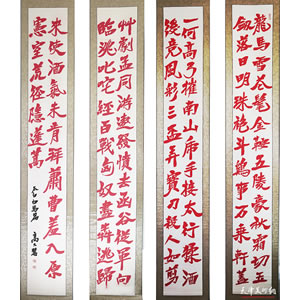 龍馬雪花毛金鞍五陵豪秋霜切玉
劍落日明珠袍斗鷄事万乘軒蓋
一何高弓摧南山虎手接太行猱酒
後竞風彩三盃弄寶刀殺人如剪
艸劇孟同游遨發憤去函谷從軍向
臨洮叱咤經百戰匈奴盡奔逃歸
来使酒氣未肯拜蕭曹羞入原
憲室荒徑隱蓬蒿
太白白馬篇
天津美术网